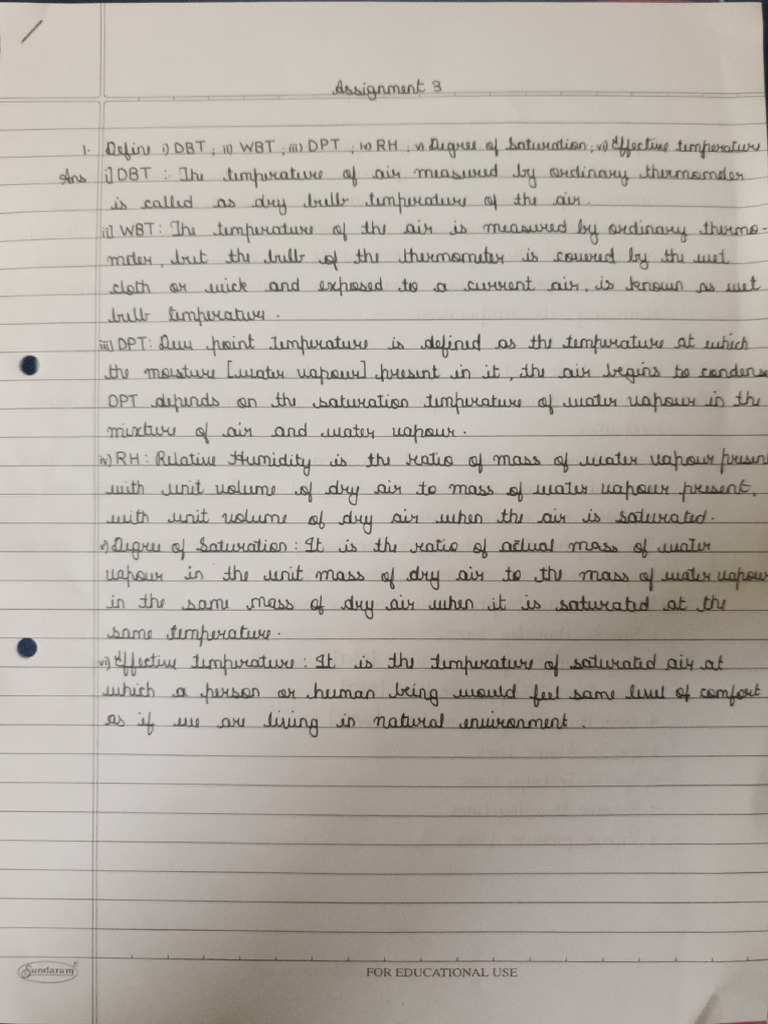 Assignment 3
1. Define i) DBT, ii) WBT, iii) DPT, iv) RH, v) Degree of Saturation, vi) Effective temperature
Ans i] DBT : The temperature of air measured by ordinary thermometer
is called as dry bulb temperature of the air.
ii] WBT : The temperature of the air is measured by ordinary thermo-
meter, but the bulb of the thermometer is covered by the wet
cloth or wick and exposed to a current air, is known as wet
bulb temperature.
iii] DPT : Dew point temperature is defined as the temperature at which
the moisture [water vapour] present in it, the air begins to condense
DPT depends on the saturation temperature of water vapour in the
mixture of air and water vapour.
iv) RH : Relative Humidity is the ratio of mass of water vapour presen
with unit volume of dry air to mass of water vapour present,
with unit volume of dry air when the air is saturated.
v) Degree of Saturation : It is the ratio of actual mass of water
vapour in the unit mass of dry air to the mass of water vapour
in the same mass of dry air when it is saturated at the
same temperature.
vi) Effective temperature : It is the temperature of saturated air at
which a person or human being would feel same level of comfort
as if we are living in natural environment.
Sundaram
FOR EDUCATIONAL USE